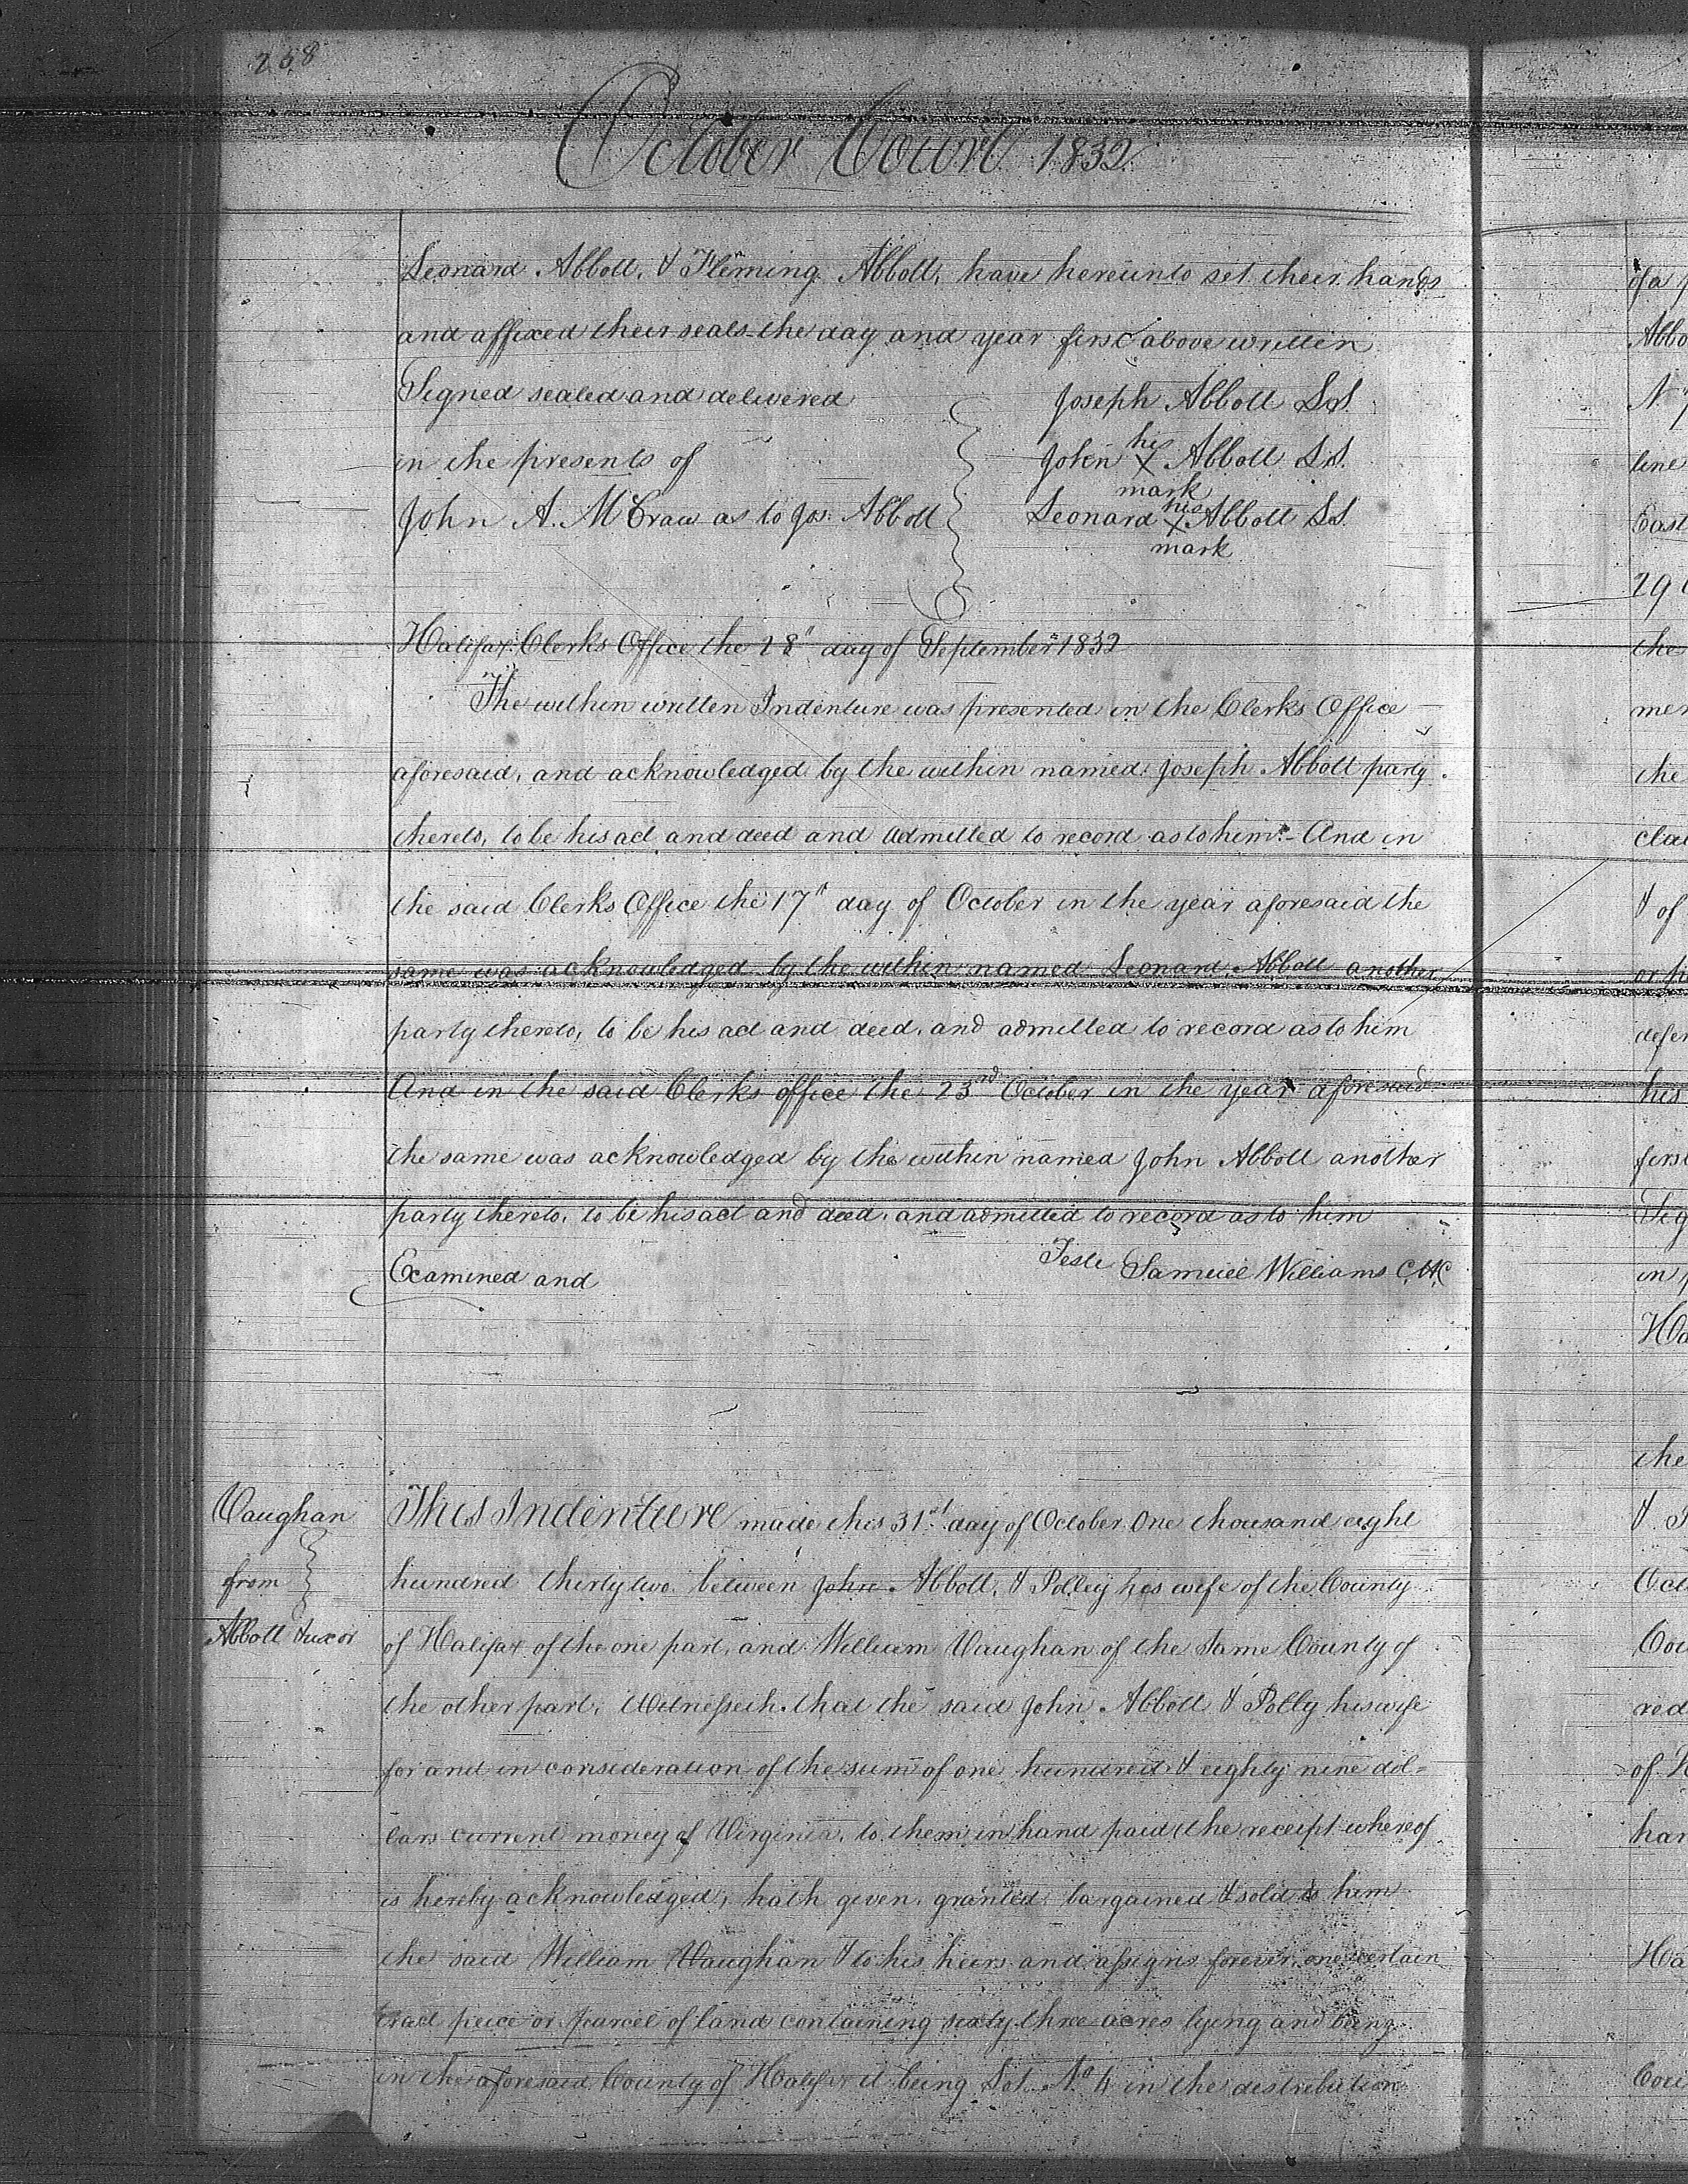 268
October Court 1832
Leonard Abbott, & Fleming Abbott, have hereunto set their hands
and affixed their seals the day and year first above written
Signed sealed and delivered
in the presents of
John A. McCraw as to Jos. Abbott
Joseph Abbott LS.
John his X mark Abbott LS.
Leonard his X mark Abbott LS.
Halifax Clerks Office the 28" day of September 1832
The within written Indenture was presented in the Clerks Office
aforesaid, and acknowledged by the within named Joseph Abbott party
thereto, to be his act and deed and admitted to record as to him. And in
the said Clerks Office the 17" day of October in the year aforesaid the
same was acknowledged by the within named Leonard Abbott another
party thereto, to be his act and deed, and admitted to record as to him
And in the said Clerks office the 23rd October in the year aforesaid
the same was acknowledged by the within named John Abbott another
party thereto, to be his act and deed, and admitted to record as to him
Teste Samuel Williams CHC
Examined and
Vaughan
from
Abbott & uxor
This Indenture made this 31st day of October One thousand eight
hundred thirty two between John Abbott, & Polley his wife of the County
of Halifax of the one part, and William Vaughan of the same County of
the other part, Witnesseth that the said John Abbott & Polly his wife
for and in consideration of the sum of one hundred & eighty nine dol=
lars current money of Virginia, to them in hand paid the receipt whereof
is hereby acknowledged, hath given, granted, bargained & sold to him
the said William Vaughan & to his heirs and assigns forever one certain
tract peice or parcel of land containing sixty three acres lying and being
in the aforesaid County of Halifax it being Lot No 4 in the distribution
of a
Abbo
line
East
29
the
mer
the
clai
& of
or p
defen
his
first
Sig
in p
Ha
the
&
Oct
Cou
red
of H
han
Ha
Cou